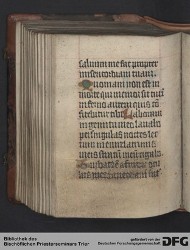 saluum me fac propter
misericordiam tuam.
Quoniam non est in
morte qui memor sit tui
in inferno autem quis
Laboraui
in gemitu meo lauabo
per singulas noctes lec
tum meum lacrimis
meis stratum meum rigabo.
Bibliothek des
Bischöflichen Priesterseminars Trier
gefördert von der
Deutschen Forschungsgemeinschaft
DFG